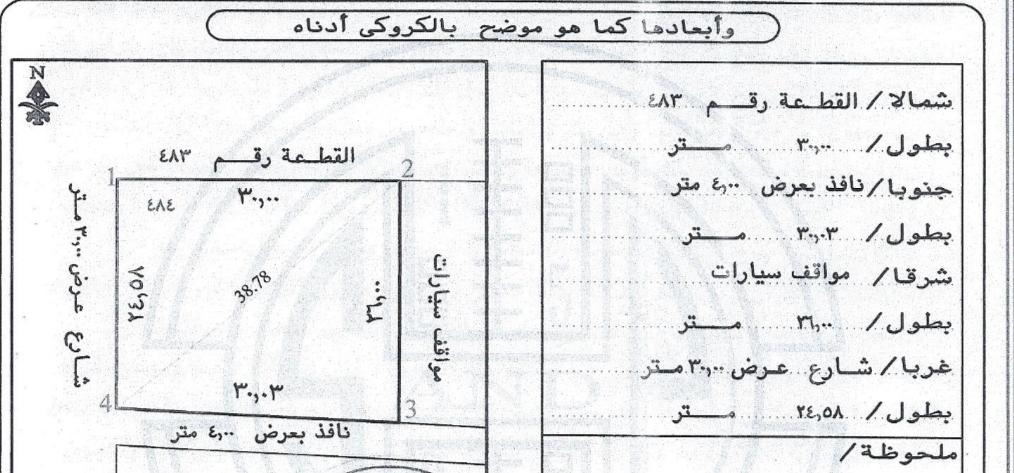 وأبعادها كما هو موضح بالكروكى أدناه
شمالا / القطعة رقم ٤٨٣
بطول / ٣٠,٠٠ متر
جنوبا / نافذ بعرض ٤,٠٠ متر
بطول / ٣٠,٠٣ متر
شرقا / مواقف سيارات
بطول / ٢٦,٠٠ متر
غربا / شارع عرض ٣٠,٠٠ متر
بطول / ٢٤,٥٨ متر
ملحوظة /
N
القطعة رقم ٤٨٣
1
2
٣٠,٠٠
٤٨٤
شارع عرض ٣٠,٠٠ متر
٢٤,٥٨
38.78
٢٦,٠٠
مواقف سيارات
٣٠,٠٣
4
3
نافذ بعرض ٤,٠٠ متر